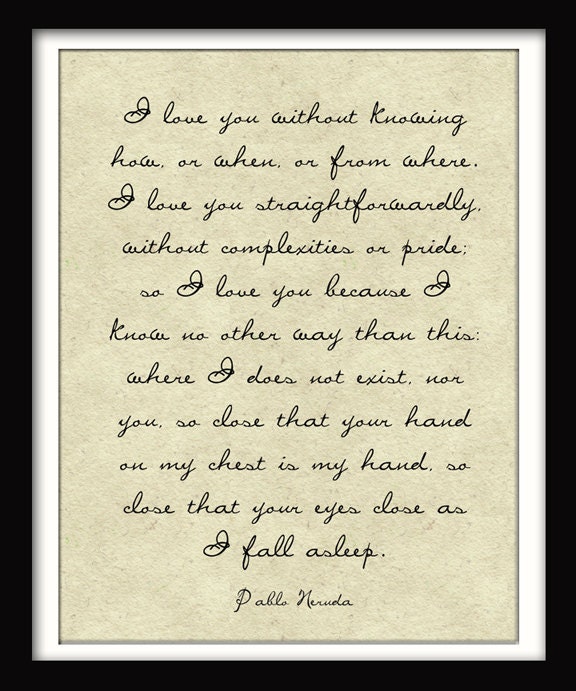 I love you without knowing
how, or when, or from where.
I love you straightforwardly,
without complexities or pride;
so I love you because I
know no other way than this:
where I does not exist, nor
you, so close that your hand
on my chest is my hand, so
close that your eyes close as
I fall asleep.
Pablo Neruda